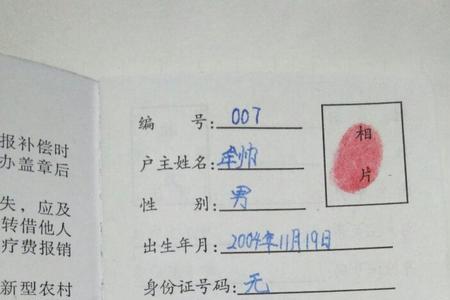 报补偿时
办盖章后
失，应及
转借他人
疗费报销
新型农村
编 号: 007
户主姓名: 牟帅
性 别: 男
出生年月: 2004年11月19日
身份证号码: 无
相
片